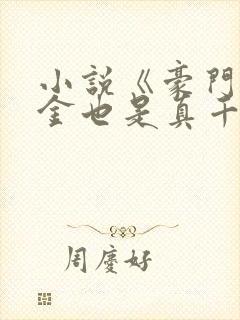 小説《豪門
金也是真千
周慶好